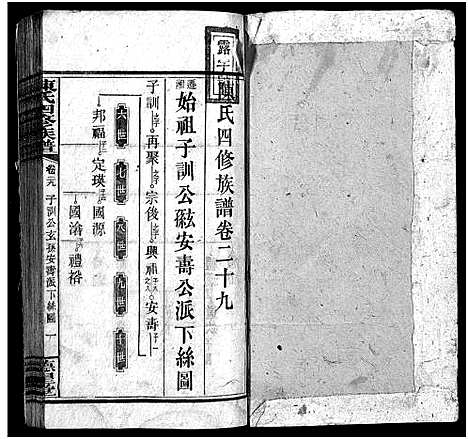 陳氏四修族譜卷二十九
遷湘
始祖子訓公玆安壽公派下絲圖
子訓 之子 再聚 之子 宗俊 之子 興祖 安壽
六世 七世 八世 九世 十世
邦福 定瑛 國源
國濬 禮裕
陳氏四修族譜 卷廿九 子訓公玄孫安壽派下絲圖 一